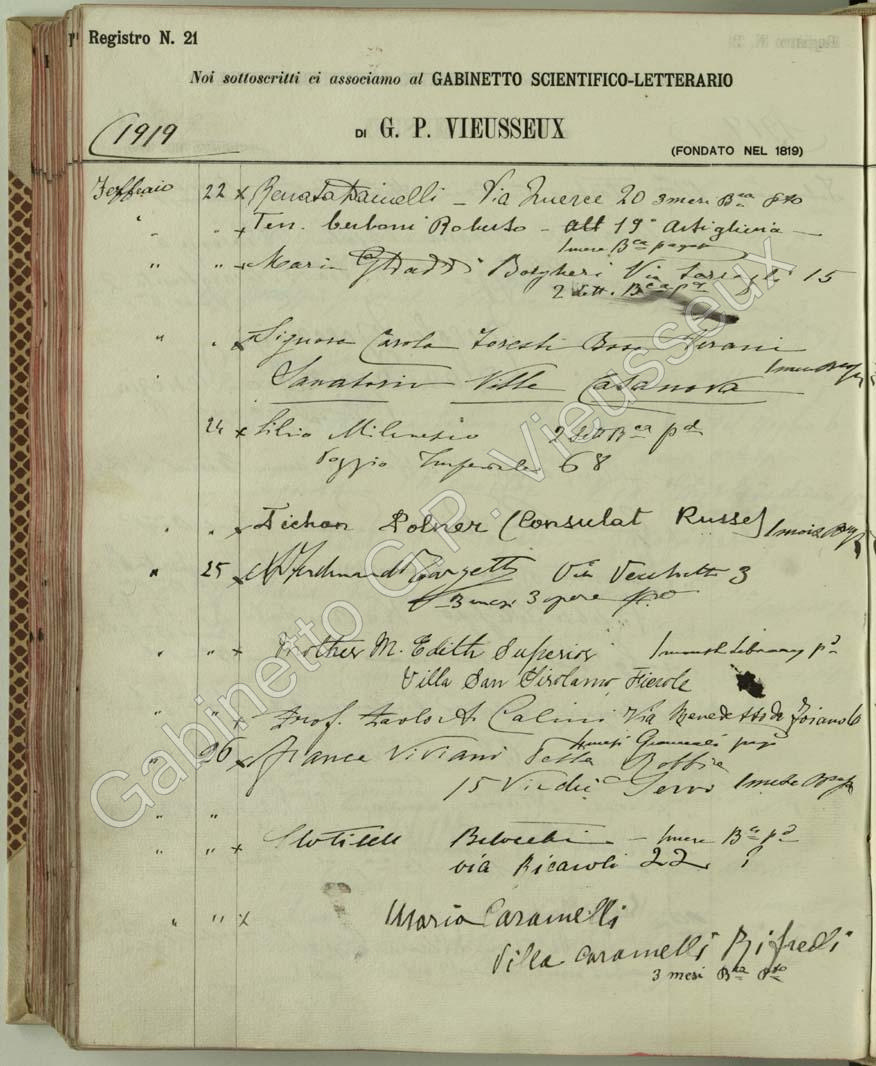 Registro N. 21
Noi sottoscritti ci associamo al GABINETTO SCIENTIFICO-LETTERARIO
1919
DI G. P. VIEUSSEUX
(FONDATO NEL 1819)
Febbraio 22 x Renata Dainelli - Via 20 3 mesi Bca pto
" " x Ten. Cerboni Roberto - 19° Artiglieria
1 mese Bca pagato
" " x Maria Borgheri Via 15
2 sett. Bca pd
" " x Signora Carola Foresti
Sanatorio Villa Casanova
1 mese
24 x 2 sett Bca pd
Poggio Imperiale 68
" " x Tichon Polner (Consulat Russe)
1 mois
" 25 x Ferdinando Via Vecchietti 3
3 mesi 3 opere pto
" " x Mother M. Edith Superior 1 month Library pd
Villa San Girolamo, Fiesole
" " x Prof. Paolo A. Calini Via Benedetto da Foiano 6
" 26 x Franca Viviani Della Robbia
15 Via dei Servi 1 mese
" "
" " x Clotilde - 1 mese Bca pd
via Ricasoli 22
" " x Maria Caramelli
Villa Caramelli Rifredi
3 mesi Bca pto
Gabinetto G.P. Vieusseux